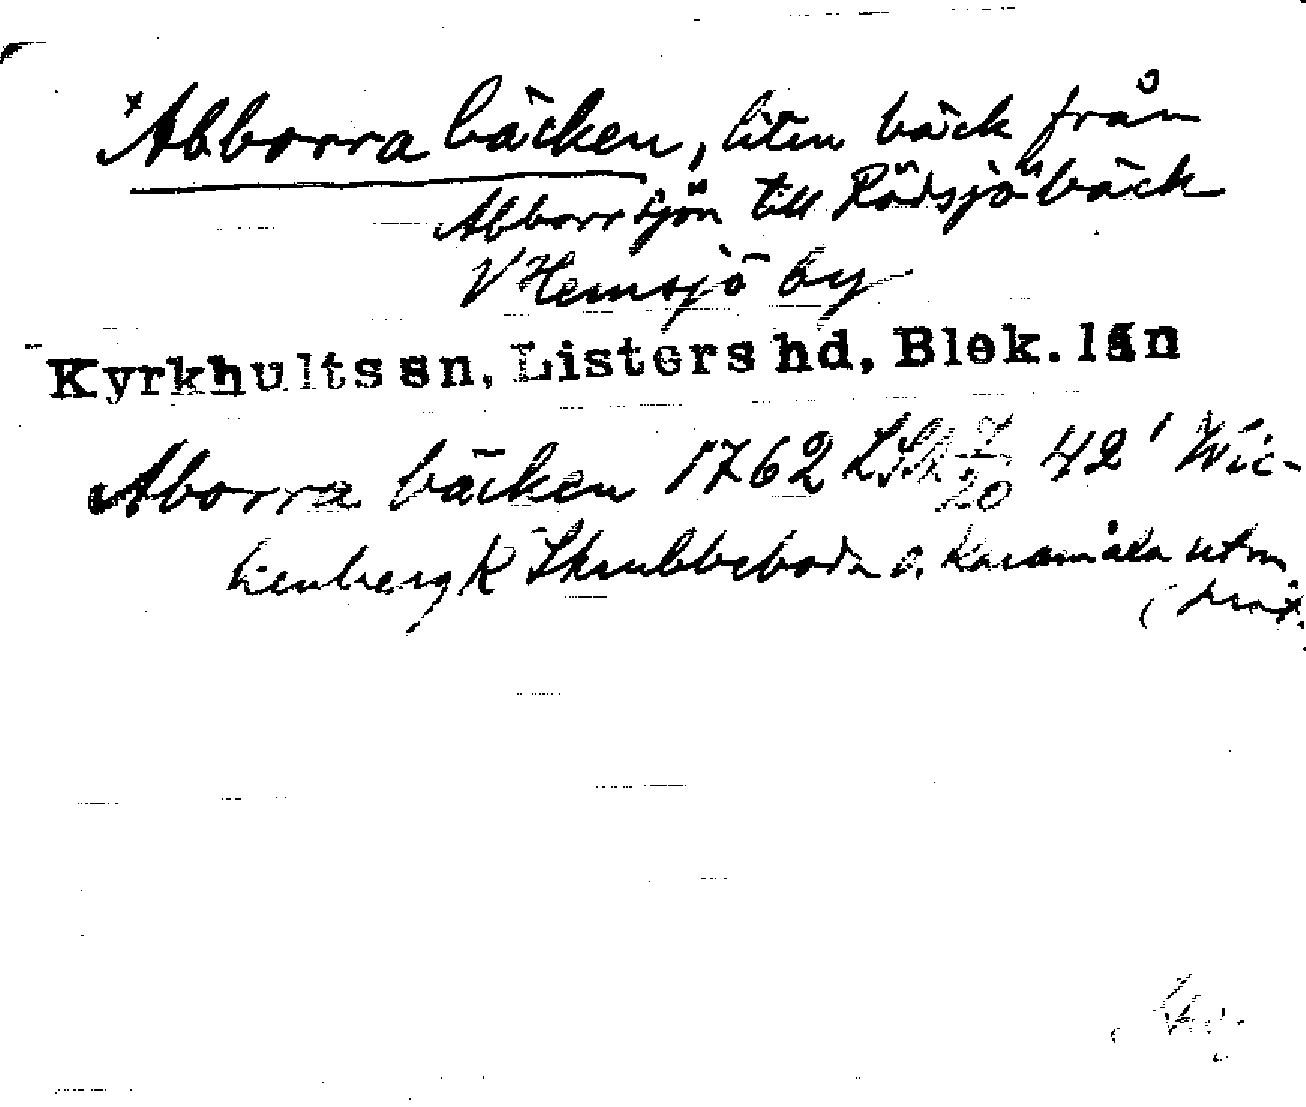 *Abborra bäcken, liten bäck från
Abborrsjön till Rödsjöbäck
V Hemsjö by
Kyrkhults sn, Listers hd, Blek. län
Aborra bäcken 1762 LSA 7/20 42' Wic-
kenberg K Skrubbeboda o. Karamåla utm